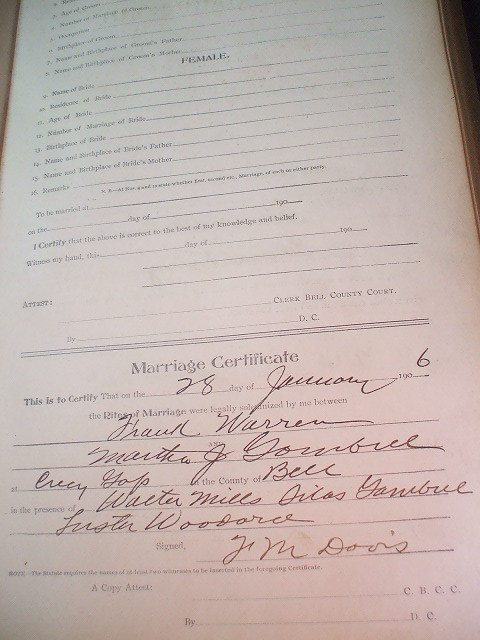 3. Age of Groom
4. Number of Marriage of Groom
5. Occupation
6. Birthplace of Groom
7. Name and Birthplace of Groom's Father
8. Name and Birthplace of Groom's Mother
FEMALE.
9. Name of Bride
10. Residence of Bride
11. Age of Bride
12. Number of Marriage of Bride
13. Birthplace of Bride
14. Name and Birthplace of Bride's Father
15. Name and Birthplace of Bride's Mother
16. Remarks
N. B.—At Nos. 4 and 12 state whether first, second etc., Marriage, of each or either party.
To be married at
on the day of 190
I Certify that the above is correct to the best of my knowledge and belief.
Witness my hand, this day of 190
ATTEST:
CLERK BELL COUNTY COURT.
By D. C.
Marriage Certificate
This is to Certify That on the 28 day of January 1906
the Rites of Marriage were legally solemnized by me between
Frank Warren
AND
Martha J Gambrel
at Gap in the County of Bell
in the presence of Walter Mills Silas Gambrel
Luster Woodard
Signed, J. M Davis
NOTE—The Statute requires the names of at least two witnesses to be inserted in the foregoing Certificate.
A Copy Attest: C. B. C. C.
By D. C.